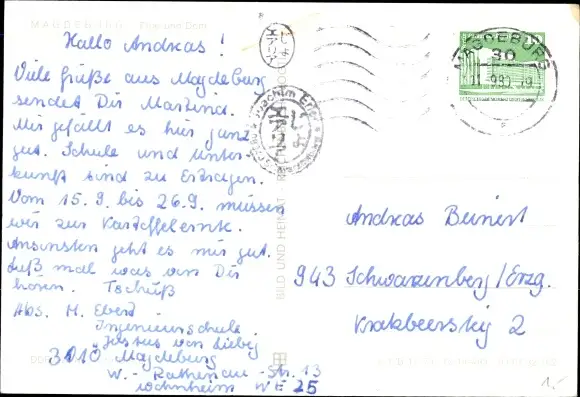 MAGDEBURG Elbe und Dom
Hallo Andreas!
Viele Grüße aus Magdeburg
sendet Dir Martina.
Mir gefällt es hier ganz
gut. Schule und Unter-
kunft sind zu Ertragen.
Vom 15.9. bis 26.9. müssen
wir zur Kartoffelernte.
Ansonsten geht es mir gut.
Laß mal was von Dir
hören. Tschüß
Abs. M. Ebert
Ingenieurschule
"Justus von Liebig
3010 Magdeburg
W.-Rathenau-Str. 13
Wohnheim WE 25
MAGDEBURG
30
Joachim Erler
BILD UND HEIMAT
Andreas Beinert
943 Schwarzenberg/Erzg.
Krakbeersteig 2
1,-